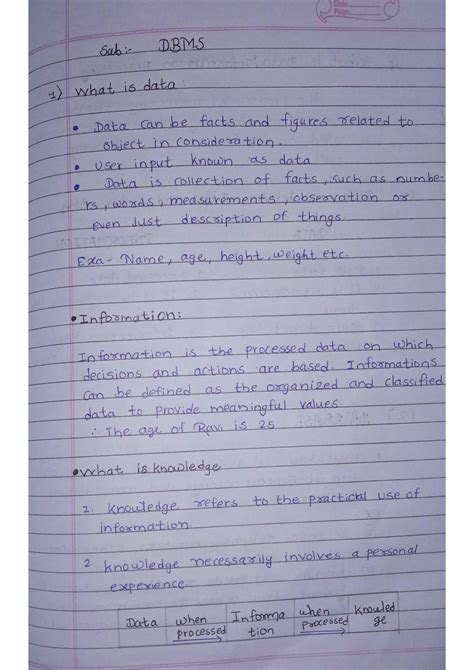 Date
Page
Sub:- DBMS
1) What is data :
• Data can be facts and figures related to
object in consideration.
• User input known as data
• Data is collection of facts, such as numbe-
rs, words, measurements, observation or
even Just description of things.
Exa- Name, age, height, weight etc.
• Information:
Information is the processed data on which
decisions and actions are based. Informations
can be defined as the organized and classified
data to provide meaningful values.
∴ The age of Ravi is 25
• What is knowledge
1. Knowledge refers to the practical use of
information.
2. knowledge necessarily involves a personal
experience.
Data when processed → Informa tion when processed → Knowled ge